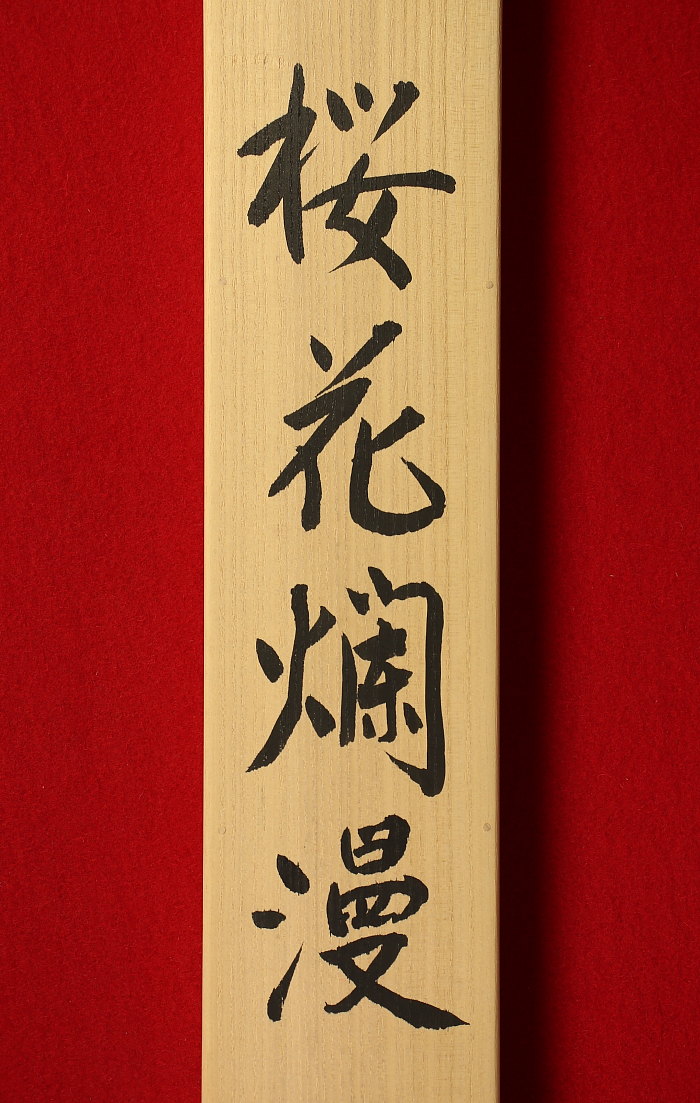 桜花爛漫